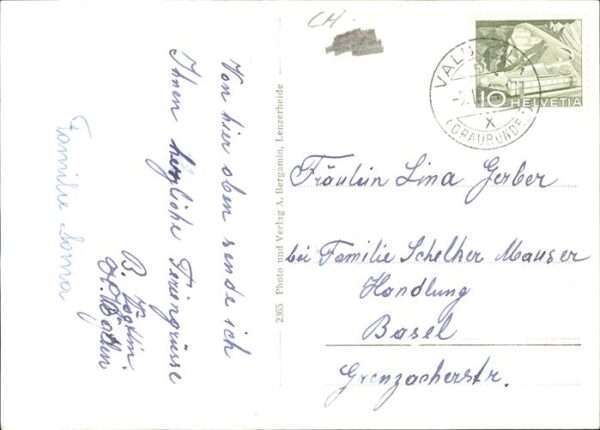 CH.
Von hier oben sende ich
Ihnen herzliche Feriengrüsse
B.
Familie
2365 Photo und Verlag A. Bergamin, Lenzerheide
10 HELVETIA
(GRAUBÜNDEN)
X
Fräulein Lina Gerber
bei Familie Schelker Mauser
Handlung
Basel
Grenzacherstr.